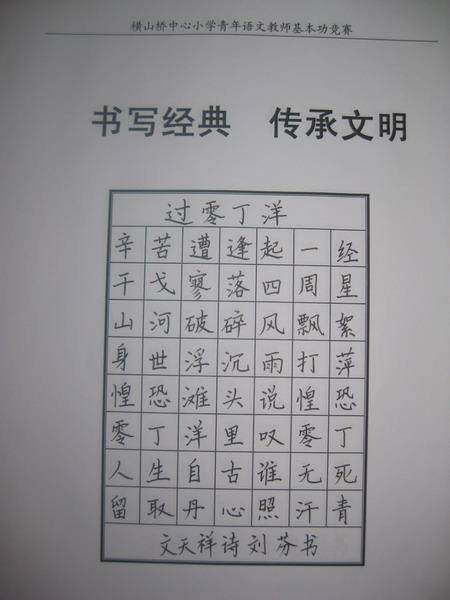 横山桥中心小学青年语文教师基本功竞赛
书写经典 传承文明
过零丁洋
辛苦遭逢起一经
干戈寥落四周星
山河破碎风飘絮
身世浮沉雨打萍
惶恐滩头说惶恐
零丁洋里叹零丁
人生自古谁无死
留取丹心照汗青
文天祥诗 刘芬书